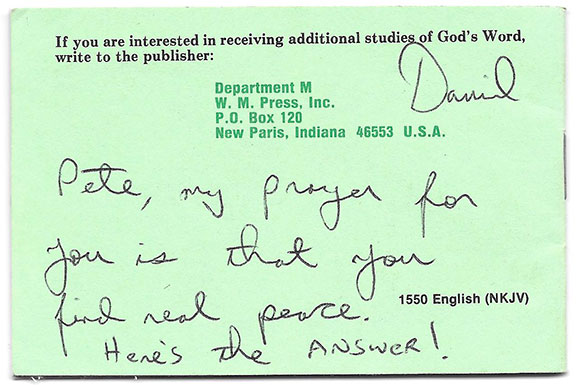 If you are interested in receiving additional studies of God's Word,
write to the publisher:
Daniel
Department M
W. M. Press, Inc.
P.O. Box 120
New Paris, Indiana 46553 U.S.A.
Pete, my prayer for
you is that you
find real peace.
1550 English (NKJV)
Here's the ANSWER!